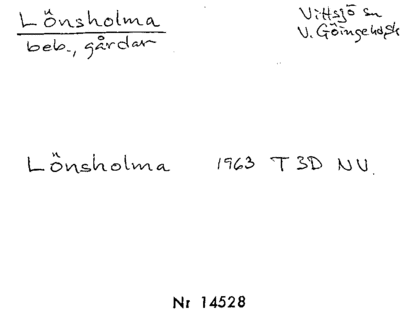 Lönsholma
beb., gårdar
Vittsjö sn
V. Göinge hd, Sk
Lönsholma 1963 T 3D NV.
Nr 14528